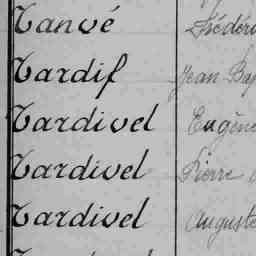 Tanvé Frédéri
Tardif Jean Bap
Tardivel Eugène
Tardivel Pierre
Tardivel Auguste